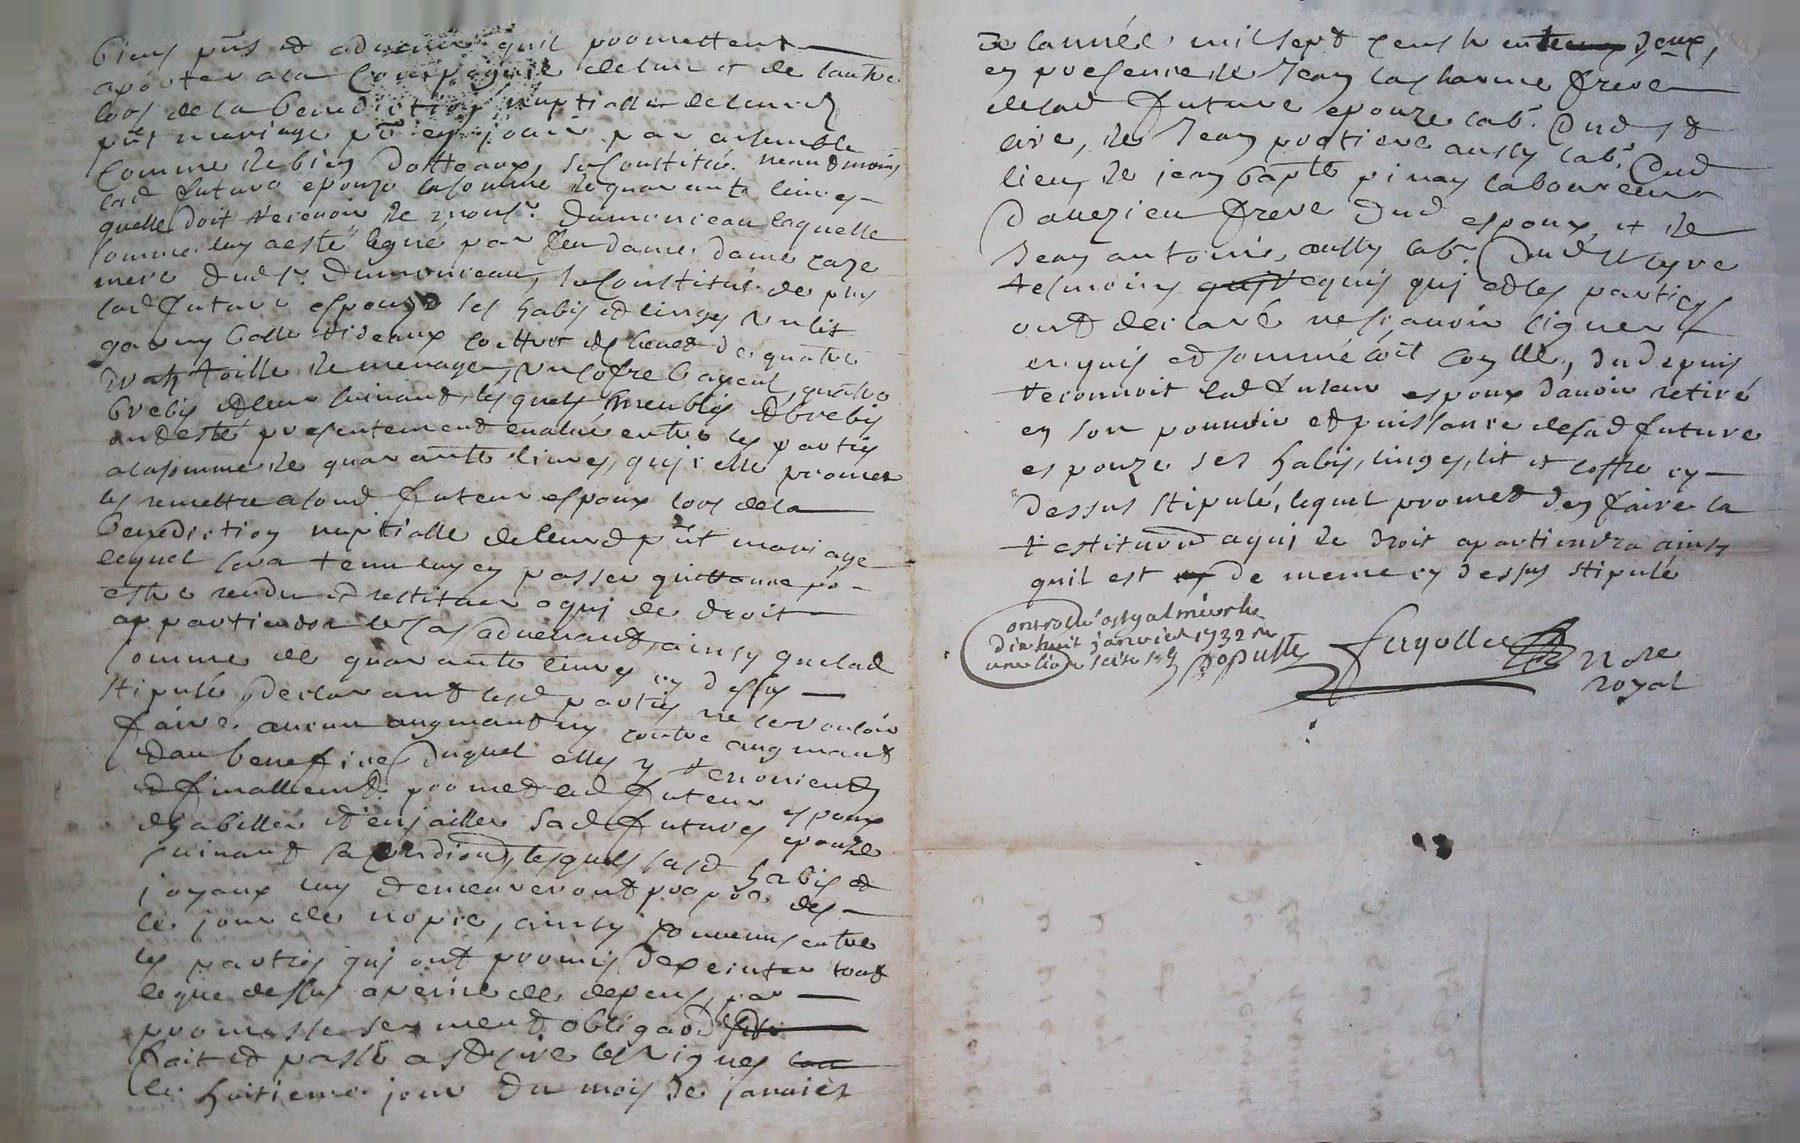 biens pnts et advenir quil promettent
aporter a la Compagnie de lun et de lautre
lors de la benediction nuptialle de leurd
pnt mariage pr en jouir par ensemble
Comme de bien dotteaux, se Constitue neantmoins
lad future epouze la somme de quarante livres
quelle doit recevoir de monsr Dumonceau laquelle
somme luy a esté legué par feu dame dame caze
mere dud sr Dumonceau, se Constitue de plus
lad future espouze ses habis et linges un lit
garny de rideaux de quatre
draps toille de menage, un cofre bayeul, quatre
brebis et leur suivant, les quels meubles et brebis
ont esté presentement evalue entre les partis
a la somme de quarante livres, quj elle promet
les remettre a soud futeur espoux lors de la
Benediction nuptialle de leurd pnt mariage
lequel sera tenu luy en passer quittance pr
estre rendu et restituer a quj de droit
appartiendra le cas advenant, ainsy que lad
somme de quarante livres cy dessus
stipulé, declarant lesd partis ne se vouloir
faire aucun augment ny contre augment
et au benefice duquel elles y renoncient
et finallemt promet led futeur espoux
dhabiller et enjoailler sad future epouze
suivant sa condiôn, lesquels susd habis et
joyaux luy demeureront propre des
le jour de nopce, ainsy convenu entre
les partis quj ont promis dexecuter tout
ce que dessus a peine de depens, par
promesse serment obligaôn
fait et passé a St Cire les vignes
le huitieme jour du mois de janvier
de lannée mil sept cens trente deux,
en presence de Jean lacharme frere
de lad future epouze labr Dud St
Cire, de Jean portiere aussy labr Dud
lieu, de jean bapte pinay laboureur
Davezieu frere dud espoux, et de
Jean antoine, aussy labr Dud St Cyre
tesmoins requis quj et les parties
ont declaré ne sçavoir signer
enquis et sommé soit comme, du depuis
reconnoit led futeur espoux davoir retiré
en son pouvoir et puissance de sad future
espouze ses habis, linges, lit et coffre cy
dessus stipulé, lequel promet den faire la
restitutiôn a quj de droit apartiendra ainsy
quil est de meme cy dessus stipulé
Controllé a st galmier le
dix huit janvier 1732 R
une livre seize s
fayolle
Nore
royal